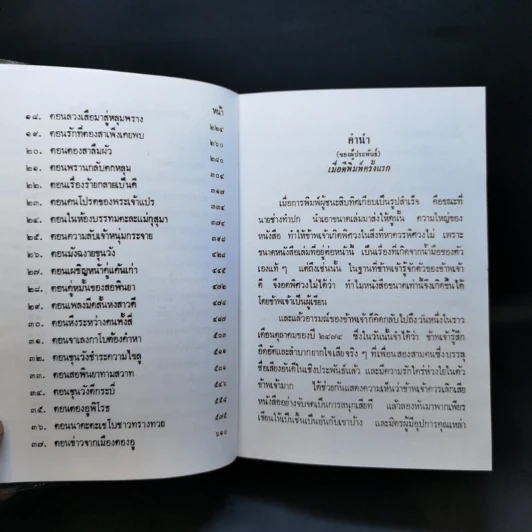 หน้า
๑๘. ตอนลวงเสือมาสู่หลุมพราง ๒๒๔
๑๙. ตอนรักที่ตองสาเพิ่งเคยพบ ๒๖๐
๒๐. ตอนตองสาลืมผัว ๒๘๐
๒๑. ตอนพรานกลับตกหลุม
๒๒. ตอนเรื่องร้ายกลายเป็นดี
๒๓. ตอนคนโปรดของพระเจ้าแปร
๒๔. ตอนในห้องบรรทมตะละแม่กุสุมา
๒๕. ตอนความลับเจ้าหนุ่มกระจาย
๒๖. ตอนมังฉงายชูนวัง
๒๗. ตอนเผชิญหน้าคู่แค้นเก่า ๔๔๕
๒๘. ตอนคู่หมั้นของสอพินยา
๒๙. ตอนเพลงมีดสั้นหงสาวดี
๓๐. ตอนหึงระหว่างคนทั้งสี่
๓๑. ตอนจาเลงกาโบต้องคำหา ๕๐๓
๓๒. ตอนขุนวังชำระความไขลู
๓๓. ตอนสอพินยาทามสวาท
๓๔. ตอนขุนวังตีกระบี่
๓๕. ตอนตองอูพิโรธ
๓๖. ตอนนาคะตะเชโบชาวทรางทวย
๓๗. ตอนข่าวจากเมืองตองอู ๖๑๐
คำนำ
(ของผู้ประพันธ์)
เมื่อตีพิมพ์ครั้งแรก
เมื่อการพิมพ์ผู้ชนะสิบทิศเกือบเป็นรูปสำเร็จ คือขณะที่
นายช่างทำปก นำเอาขนาดเล่มมาส่งให้ดูนั้น ความใหญ่ของ
หนังสือ ทำให้ข้าพเจ้าเกิดพิศวงในสิ่งที่หาควรพิศวงไม่ เพราะ
ขนาดหนังสือเล่มที่อยู่ต่อหน้านี้ เป็นเรื่องที่เกิดจากน้ำมือของตัว
เองแท้ ๆ แต่ถึงเช่นนั้น ในฐานที่ข้าพเจ้ารู้จักตัวของข้าพเจ้า
ดี จึงอดพิศวงไม่ได้ว่า ทำไมหนังสือขนาดเท่านี้จึงเกิดขึ้นได้
โดยข้าพเจ้าเป็นผู้เขียน
และแล้วอารมณ์ของข้าพเจ้าก็คิดกลับไปถึงวันหนึ่งในราว
เดือนตุลาคมของปี ๒๔๗๔ ซึ่งในวันนั้นจำได้ว่า ข้าพเจ้ารู้สึก
อึดอัดและลำบากยากใจเสียจริง ๆ ที่เพื่อนสองสามคนซึ่งบรรลุ
ชื่อเสียงอันดีในเชิงประพันธ์แล้ว และมีความรักใคร่ห่วงใยในตัว
ข้าพเจ้ามาก ได้ช่วยกันแสดงความเห็นว่าข้าพเจ้าควรเลิกเสีย
หนังสืออย่างจับจดเป็นการสนุกเสียที แล้วลองหันมาพากเพียร
เขียนให้เป็นชิ้นเป็นอันกับเขาบ้าง และมิตรผู้มีอุปการคุณเหล่า